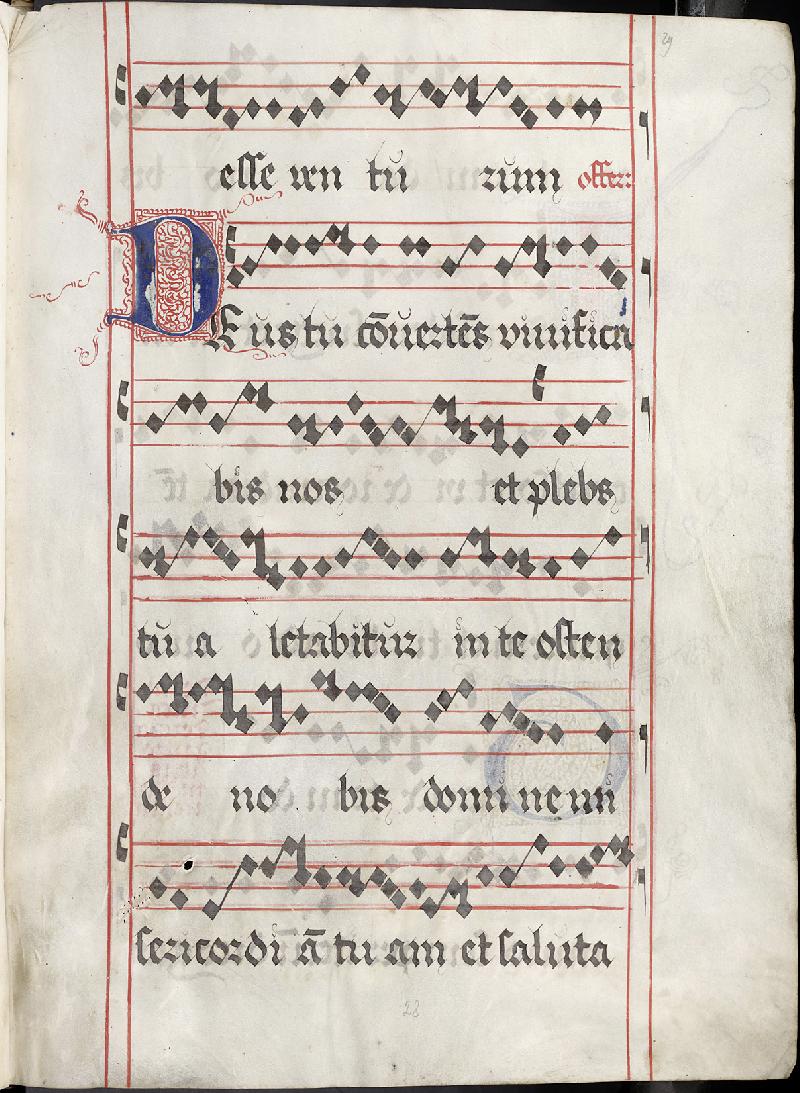 29
esse uen tu rum offer:
DEus tu cōuertēs viuifica
bis nos et plebs
tu a letabitur in te osten
de no bis domi ne mi
sericordi ā tu am et saluta
28